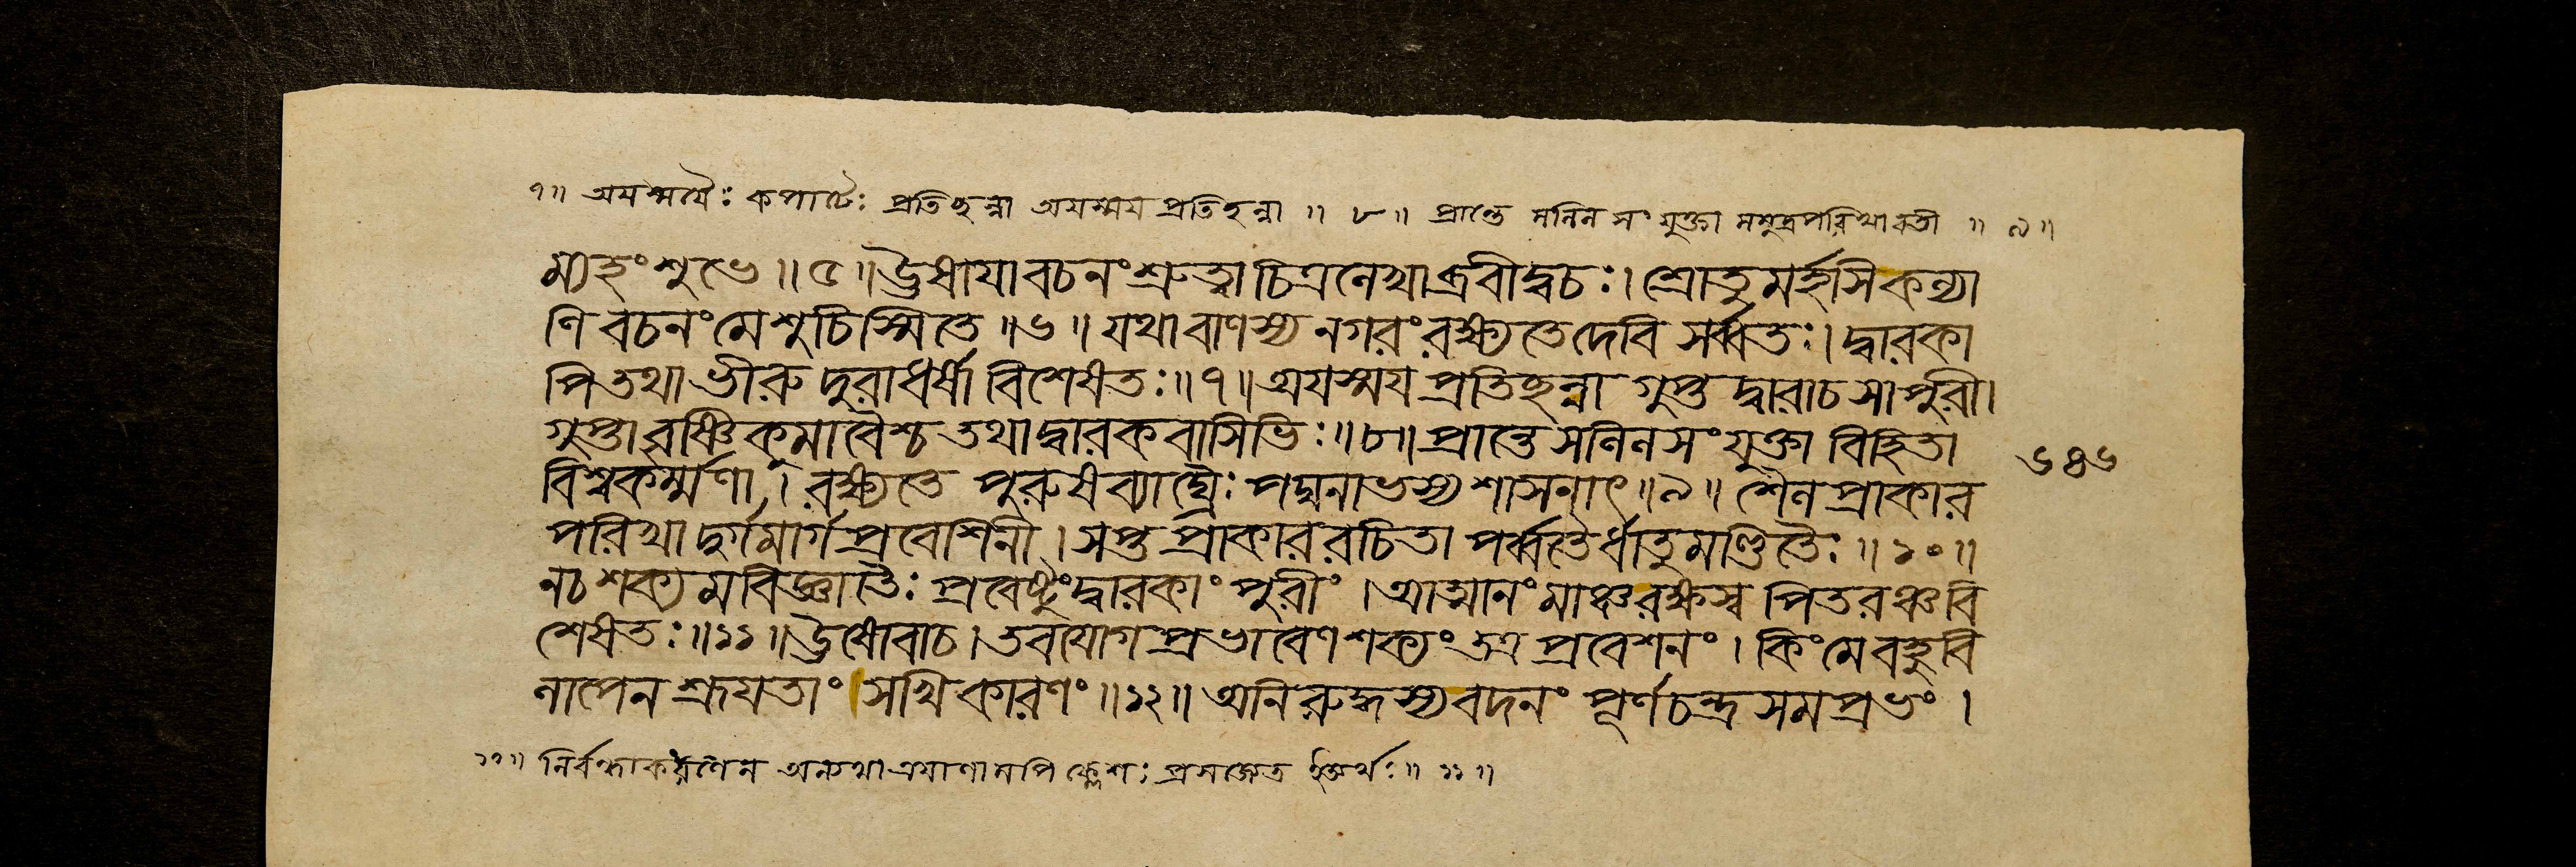 ৭॥ অযস্মযৈঃ কপাটৈঃ প্রতিছন্না অযস্মযপ্রতিছন্না ॥ ৮॥ প্রান্তে সলিল সংযুক্তা সমুদ্রপরিখাবতী ॥ ৯॥
ম্যহং শুভে॥৫॥ঊষাযাবচনং শ্রুত্বা চিত্রলেখাব্রবীদ্বচঃ। শ্রোতুমর্হসিকল্যা
ণি বচনং মে শুচিস্মিতে॥৬॥ যথা বাণস্য নগরং রক্ষ্যতে দেবি সর্ব্বতঃ। দ্বারকা
পি তথা ভীরু দুরাধর্ষা বিশেষতঃ॥৭॥ অযস্ময প্রতিছন্না গুপ্ত দ্বারাচ সা পুরী।
গুপ্তা বৃষ্ণিকুমারৈশ্চ তথা দ্বারকবাসিভিঃ॥৮॥ প্রান্তে সলিলসংযুক্তা বিহিতা
বিশ্বকর্ম্মণা। রক্ষ্যতে পুরুষব্যাঘ্রৈঃ পদ্মনাভস্য শাসনাৎ॥৯॥ শৈলপ্রাকার
পরিখা দুর্গমার্গপ্রবেশিনী। সপ্ত প্রাকাররচিতা পর্ব্বতৈর্ধাতুমণ্ডিতৈঃ॥১০॥
নচ শক্যমবিজ্ঞাতৈঃ প্রবেষ্টুং দ্বারকাং পুরীং। আত্মানং মাঞ্চ রক্ষস্ব পিতরঞ্চবি
শেষতঃ॥১১॥ঊষোবাচ। তব যোগপ্রভাবেণ শক্যং তত্র প্রবেশনং। কিং মে বহুবি
লাপেন শ্রূযতাং সখি কারণং॥১২॥ অনিরুদ্ধস্যবদনং পূর্ণচন্দ্র সমপ্রভং।
৬৪৬
অন্যথা ত্রযাণামপি ক্লেশঃ প্রসজ্জেত ইত্যর্থঃ॥ ১১॥